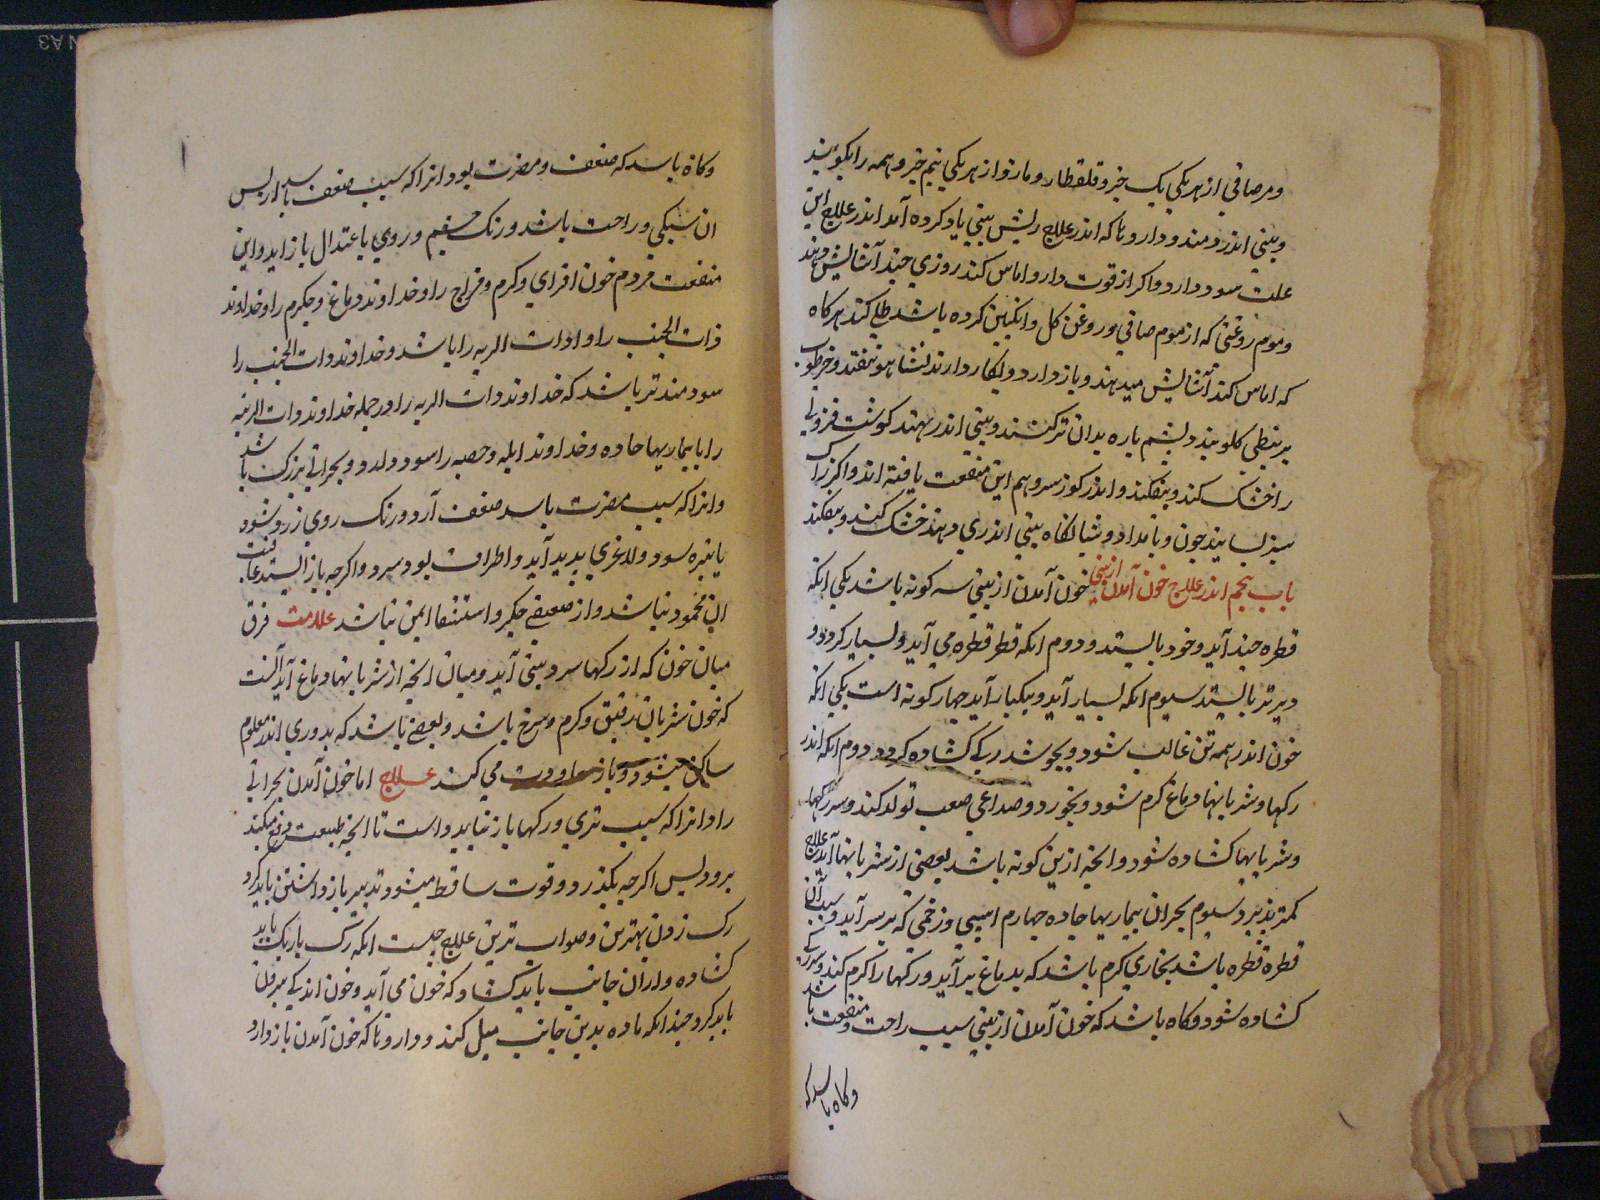 ومرصافی از هر یکی یک جزو قلقطار و مازو از هر یکی نیم جزو همه را بکوبند
و بینی اندر دمند و داروها که اندر علاج ریش بینی یاد کرده آمد اندر علاج این
علت سود دارد و اگر از قوت دارو اماس کند روزی چند آسایش دهند
و موم روغنی که از موم صافی و روغن گل و انگبین کرده باشد طلی کند هر گاه
که اماس کند آسایش میدهند و باز دارد و بکار دارند
بر نبطی کلوبند و پشم پاره بدان تر کنند و بینی اندر نهند گوشت فزونی
را خشک کند و بیفکند و اندر کوز سر و هم این منفعت یافته اند و اگر زاک
سبز بسایند چون و بامداد و شبانگاه بینی اندر می دهند خشک کند و بیفکند
باب پنجم اندر علاج خون آمدن از بینی خون آمدن از بینی سه گونه باشد یکی انکه
قطره چند آید و خود بایستد و دوم انکه قطر قطره می آید و بسیار گردد و
دیر تر بایستد سیوم انکه بسیار آید و بیکبار آید چهار گونه است یکی انکه
خون اندر همه تن غالب شود و بجوشد رگی گشاده گردد دوم انکه اندر
رگها و شریانها دماغ گرم شود و بخورد و صداعی صعب تولد کند و سر رگها
و شریانها گشاده شود و انچه ازین گونه باشد بعضی از شریانها آید علاج
کمتر پذیرد سیوم بحران بیماریها حاده چهارم اسیبی و زخمی که بر سر آید و سبب آن
قطره قطره باشد بخاری گرم باشد که بدماغ بر آید و رگها را گرم کند و سر رگی
گشاده شود و گاه باشد که خون آمدن از بینی سبب راحت و منفعت باشد
و گاه باشد که
و گاه باشد که ضعف و مضرت بود و انرا که سبب ضعف باشد از پس
ان سبکی و راحت باشد و رنگ چشم و روی باعتدال باز اید و این
منفعت مردم خون افزای و گرم و مزاج را و خداوند دماغ و جگرم را و خداوند
ذات الجنب را و ذات الریه را باشد و خداوند ذات الجنب را
سودمند تر باشد که خداوند ذات الریه را در جمله خداوند ذات الریه
را با بیماریها حاده و خداوند ابله و حصبه را سود دارد و بحرانی بزرگ باشد
و انرا که سبب مضرت باشد ضعف آرد و رنگ روی زرد شود
یا تیره شود و لاغری پدید آید و اطراف بود سرد و اگر چه باز ایستد عاقبت
ان محمود نباشد و از ضعیفی جگر و استسقا ایمن نباشد علامت فرق
میان خون که از رگها سر و بینی آید و میان انچه از شریانها دماغ آید آنست
که خون شریان رقیق و گرم و سرخ باشد و بعضی باشد که بدوری اندر معلوم
ساکن میشود و باز معاودت می کند علاج اما خون آمدن بحرانی
را و انرا که سبب تری رگها باز نباید داشت تا انچه طبیعت دفع میکند
برود پس اگر چه بگذرد و قوت ساقط میشود تدبیر باز داشتن باید کرد
رگ زدن بهترین و صواب ترین علاج چیست انکه رگ باریک باید
گشاده و از ان جانب باید گشاد که خون می آید و خون اندکی بیرون
باید کرد چند انکه ماده بدین جانب میل کند و داروها که خون آمدن باز دارد